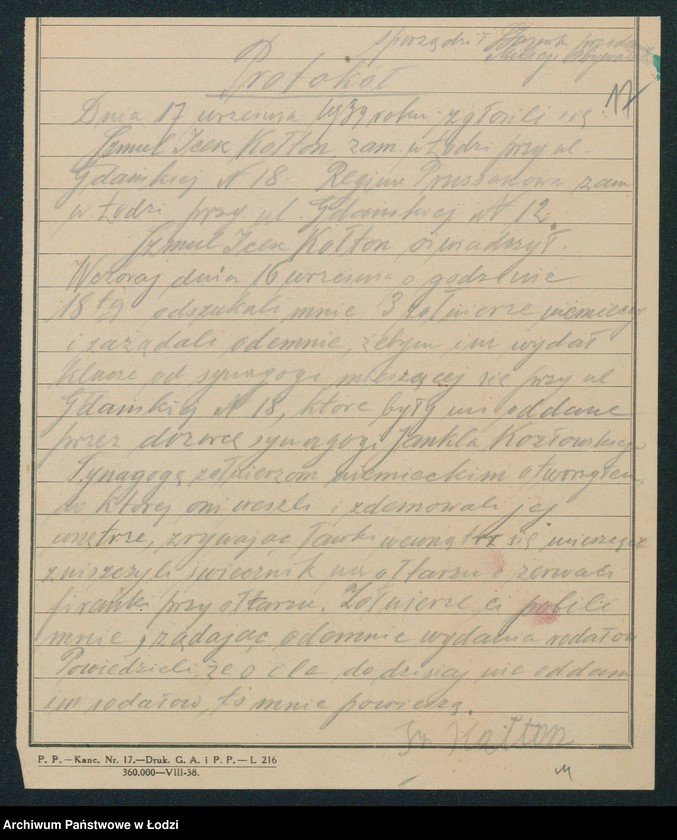 sporządził
Milicji Obywatel
17
Protokół
Dnia 17 września 1939 roku zgłosili się
Szmul Icek Kołton zam. w Łodzi przy ul.
Gdańskiej N 18. Regina Prussakowa zam
w Łodzi przy ul. Gdańskiej N 12.
Szmul Icek Kołton oświadczył.
Wczoraj dnia 16 września o godzinie
18tej odszukali mnie 3 żołnierze niemieccy
i zażądali odemnie, żebym im wydał
klucze od synagogi mieszczącej się przy ul
Gdańskiej N 18, które były mi oddane
przez dozorcę synagogi Jankla Kozłowskiego
Synagogę żołnierzom niemieckim otworzyłem,
do której oni weszli i zdemowali jej
wnętrze, zrywając ławki wewnątrz się mieszczące
zniszczyli świecznik na ołtarzu i zerwali
firanki przy ołtarzu. Żołnierze ci pobili
mnie, żądając odemnie wydania rodałow
Powiedzieli, że o ile do dzisiaj nie oddam
im rodałow, to mnie powieszą.
Sz. Kołton
P. P. — Kanc. Nr. 17. — Druk. G. A. i P. P. — L 216
360.000—VIII-38.
Archiwum Państwowe w Łodzi